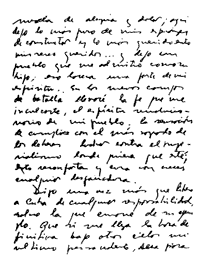 mezcla de alegría y dolor; aquí
dejo lo más puro de mis esperanzas
de constructor y lo más querido entre
mis seres queridos... y dejo un
pueblo que me admitió como a un
hijo; eso lacera una parte de mi
espíritu. En los nuevos campos
de batalla llevaré la fe que me
inculcaste, el espíritu revolucio-
nario de mi pueblo, la sensación
de cumplir con el más sagrado de
los deberes: luchar contra el impe-
rialismo donde quiera que esté;
esto reconforta y cura con creces
cualquier desgarradura.
Digo una vez más que libero
a Cuba de cualquier responsabilidad,
salvo la que emane de su ejem-
plo. Que si me llega la hora de-
finitiva bajo otros cielos mi
último pensamiento, será para